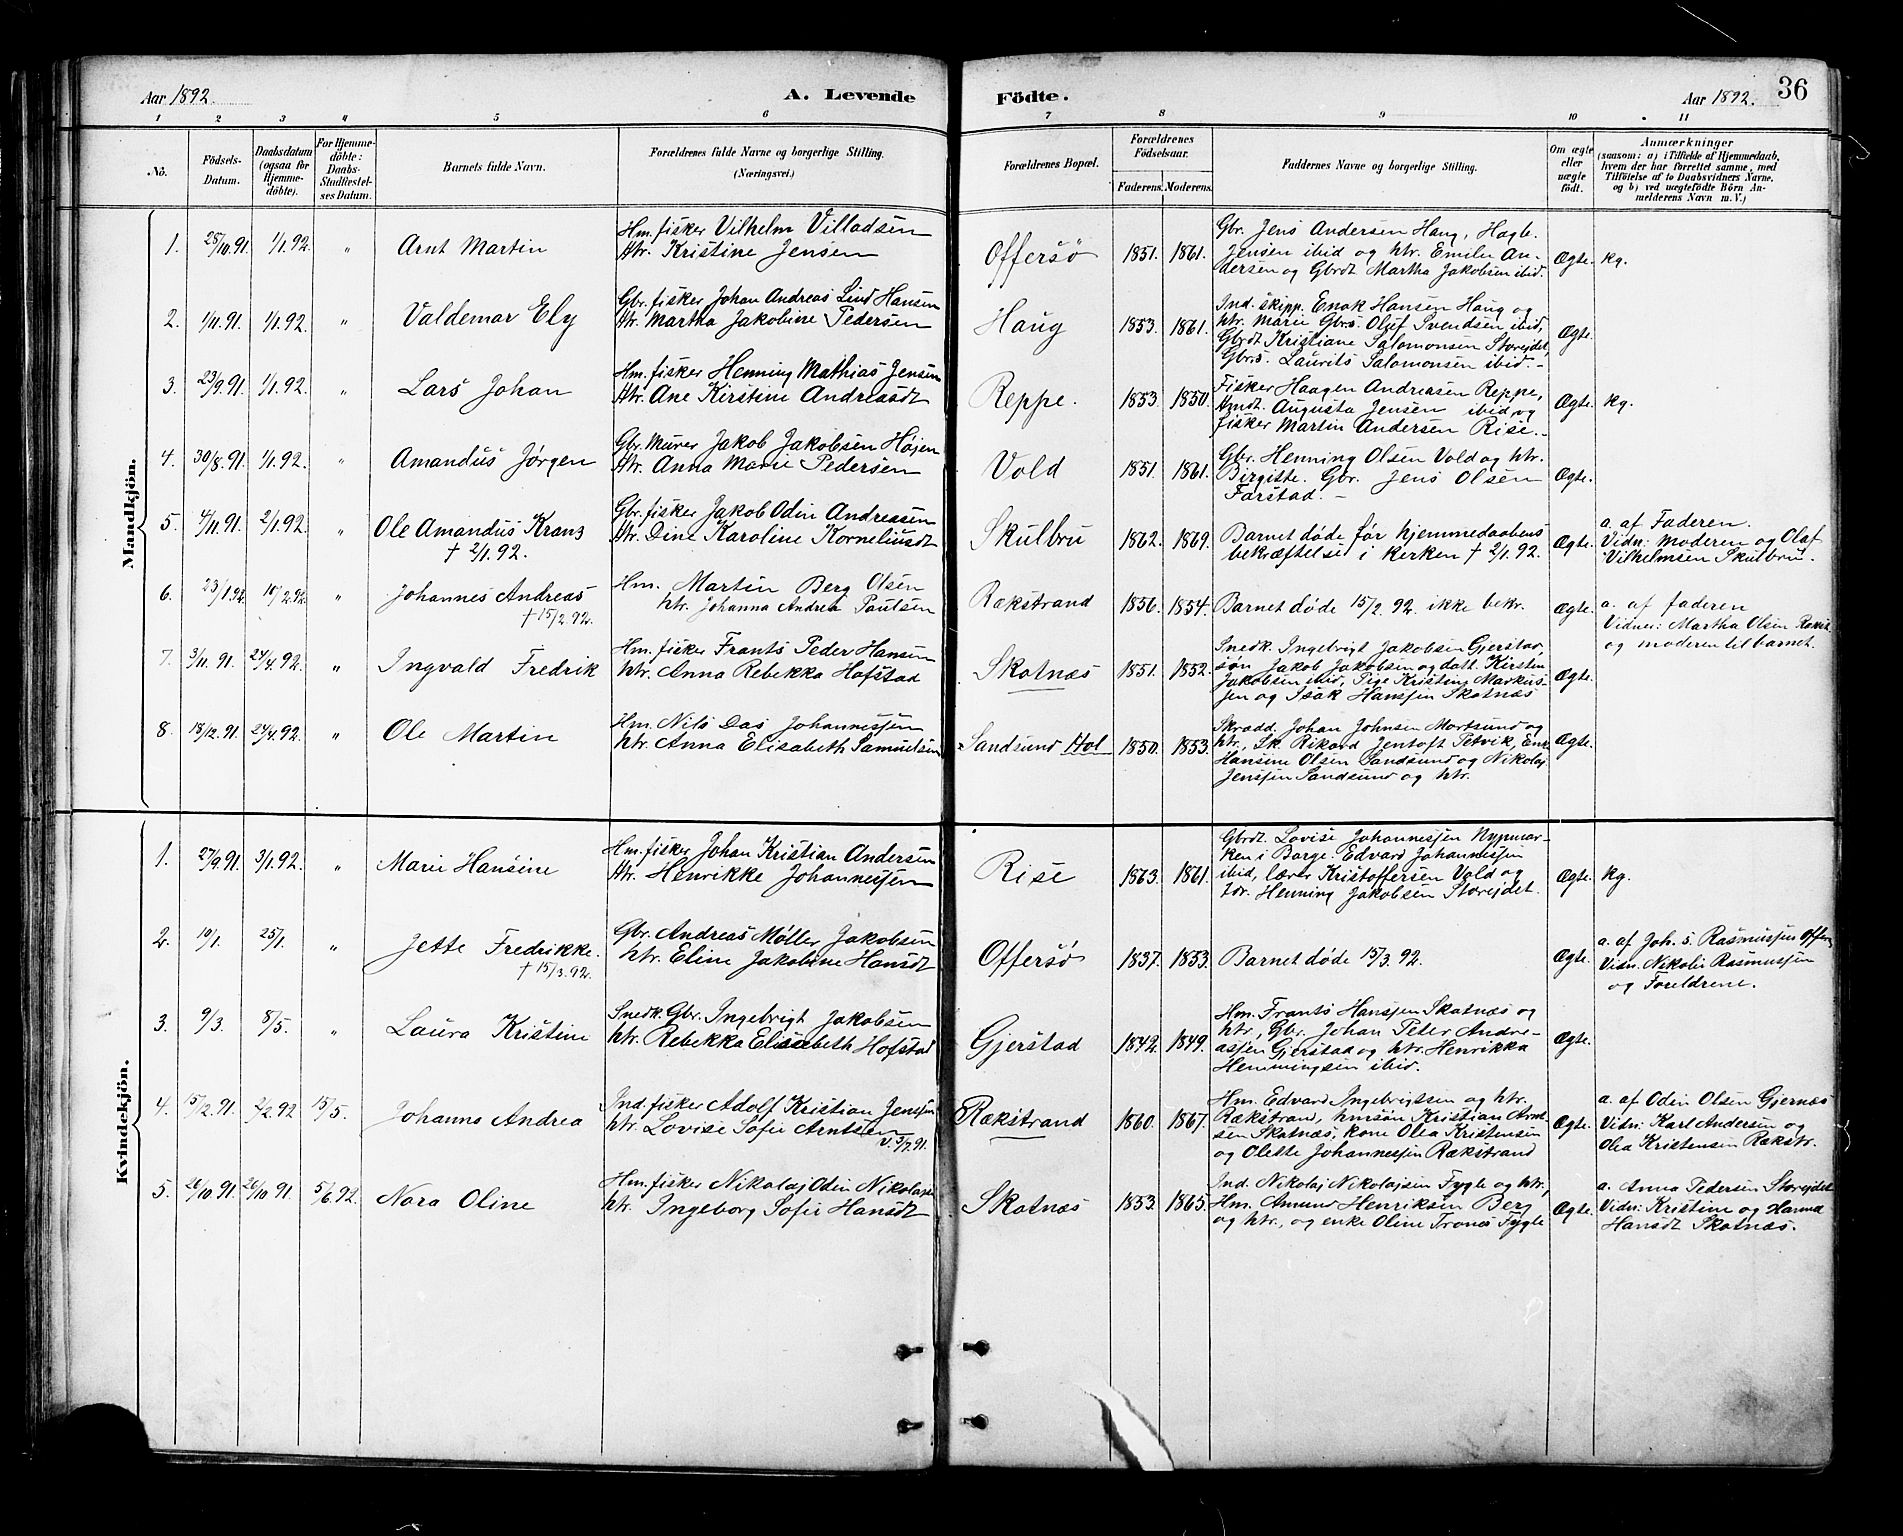 Aar 1892. A. Levende Födte. Aar 1892. 36
1 2 3 4 5 6 7 8 9 10 11
No.
Födsels-Datum.
Daabsdatum (ogsaa for Hjemme-döbte).
For Hjemme-döbte: Daabs-Stadfæstelses Datum.
Barnets fulde Navn.
Forældrenes fulde Navne og borgerlige Stilling.
(Næringsvei.)
Forældrenes Bopæl.
Forældrenes Födselsaar.
Faderens. Moderens.
Faddernes Navne og borgerlige Stilling.
Om ægte eller uægte födt.
Anmærkninger
(saasom: a) i Tilfælde af Hjemmedaab,
hvem der har forrettet samme, med
Tilföielse af to Daabsvidners Navne,
og b) ved uægtefödte Börn An-
melderens Navn m. V.)
Mandkjön.
1. 25/10.91. 1/1.92. " Arnt Martin
Hm. fisker Vilhelm Villadsen
Htr. Kristine Jensen
Offersø 1851. 1861.
Gbr. Jens Andersen Haug, Hagb.
Jensen ibid og htr. Emilie An-
dersen og Gbrdt Martha Jakobsen ibid.
Ægte. kg.
2. 1/11.91. 1/1.92. " Valdemar Ely
Gbr. fisker Johan Andreas Lind Hansen
Htr. Martha Jakobine Pedersen
Haug 1853. 1861.
Ind. skipp. Enok Hansen Haug og
htr. Marie Gbrs. Oluf Svendsen ibid,
Gbrdt Kristiane Salomonsen Storejdet,
Gbrs. Laurits Salomonsen ibid. -
Ægte.
3. 23/9.91. 1/1.92. " Lars Johan
Hm. fisker Henning Mathias Jensen
Htr. Ane Kirstine Andreasdt
Reppe. 1853. 1850.
Fisker Haagen Andreasen Reppe,
Hmdt. Augusta Jensen ibid, og
fisker Martin Andersen Rise. -
Ægte. kg.
4. 30/8.91. 1/1.92. " Amandus Jørgen
Gbr. Murer Jakob Jakobsen Højen
Htr. Anna Marie Pedersen
Vold 1851. 1861.
Gbr. Henning Olsen Vold og htr.
Birgitte. Gbr. Jens Olsen
Farstad. -
Ægte.
5. 4/11.91. 2/1.92. " Ole Amandus Krans
† 2/1.92.
Gbr. fisker Jakob Odin Andreasen
Htr. Dine Karoline Korneliusdt
Skulbru 1862. 1869.
Barnet døde før hjemmedaabens
bekræftelse i kerken † 2/1.92.
Ægte.
a. af Faderen.
Vidn: Moderen og Olaf
Vilhelmsen Skulbru.
6. 23/1.92. 10/2.92. " Johannes Andreas
† 15/2.92.
Hm. Martin Berg Olsen
htr. Johanna Andrea Paulsen
Rækstrand 1856. 1854.
Barnet døde 15/2.92. ikke bekr.
Ægte.
a. af faderen
Vidner: Martha Olsen Rækst
og moderen til barnet.
7. 3/11.91. 24/4.92. " Ingvald Fredrik
Hm. fisker Frants Peder Hansen
htr. Anna Rebekka Hofstad
Skotnæs 1851. 1852.
Snedk. Ingebrigt Jakobsen Gjerstad,
søn Jakob Jakobsen og datt. Kirsten
Jakobsen ibid, Pige Kristine Markus-
sen og Isak Hanssen Skotnæs
Ægte.
8. 18/12.91. 24/4.92. " Ole Martin
Hm. Nils Das Johannessen
htr. Anna Elisabeth Samuelsen
Sandsund Hol 1850. 1853.
Skradd. Johan Johnsen Mortsund og
htr., Sk. Rikard Jentoft Petvik, Enke
Hansine Olsen Sandsund og Nikolaj
Jenssen Sandsund og htr.
Ægte.
Kvindekjön.
1. 27/9.91. 3/1.92. " Marie Hansine
Hm. fisker Johan Kristian Andersen
Htr. Henrikke Johannessen
Rise 1863. 1861.
Gbrdt. Lovise Johannessen Nypmar-
ken i Borge. Edvard Johannessen
ibid, lærer Kristoffersen Vold og
Henning Jakobsen Storejdet.
Ægte. kg.
2. 19/1. 25/1. " Jette Fredrikke.
† 15/3.92.
Gbr. Andreas Møller Jakobsen
htr. Eline Jakobine Hansdt
Offersø 1837. 1853.
Barnet døde 15/3.92.
Ægte.
a. af Joh. s. Rasmussen Offersø
Vidn. Nikolai Rasmussen
og Foreldrene.
3. 9/3. 8/5. " Laura Kristine
Snedk. Gbr. Ingebrigt Jakobsen
htr. Rebekka Elisabeth Hofstad
Gjerstad 1842. 1849.
Hm. Frants Hanssen Skotnæs og
htr, Gbr. Johan Peter Andre-
assen Gjerstad og htr. Henrikka
Hemmingsen ibid.
Ægte.
4. 15/12.91. 2/2.92 15/5. Johanna Andrea
Ind. fisker Adolf Kristian Jenssen
htr. Lovise Sofie Arntsen
v. 5/9.91.
Rækstrand 1860. 1867.
Hm. Edvard Ingebrigtsen og htr.
Rækstran, hmsøn Kristian Arnt-
sen Skotnæs, kone Olea Kristensen
og Olette Johannessen Rækstrand
Ægte.
a. af Odin Olsen Gjernæs
Vidn: Karl Andersen og
Olea Kristensen Rækstr.
5. 26/10.91. 26/10 91. 5/6.92. Nora Oline
Hm. fisker Nikolaj Odin Nikolajsen
htr. Ingeborg Sofie Hansdt
Skotnæs 1853. 1865.
Ind. Nikolaj Nikolajsen Fygle og htr,
Hm. Amund Henriksen Berg
og htr., og enke Oline Tronos Fygle
Ægte.
a. Anna Pedersen Storejdet
Vidn: Kristine og Hanna
Hansdt Skotnæs.